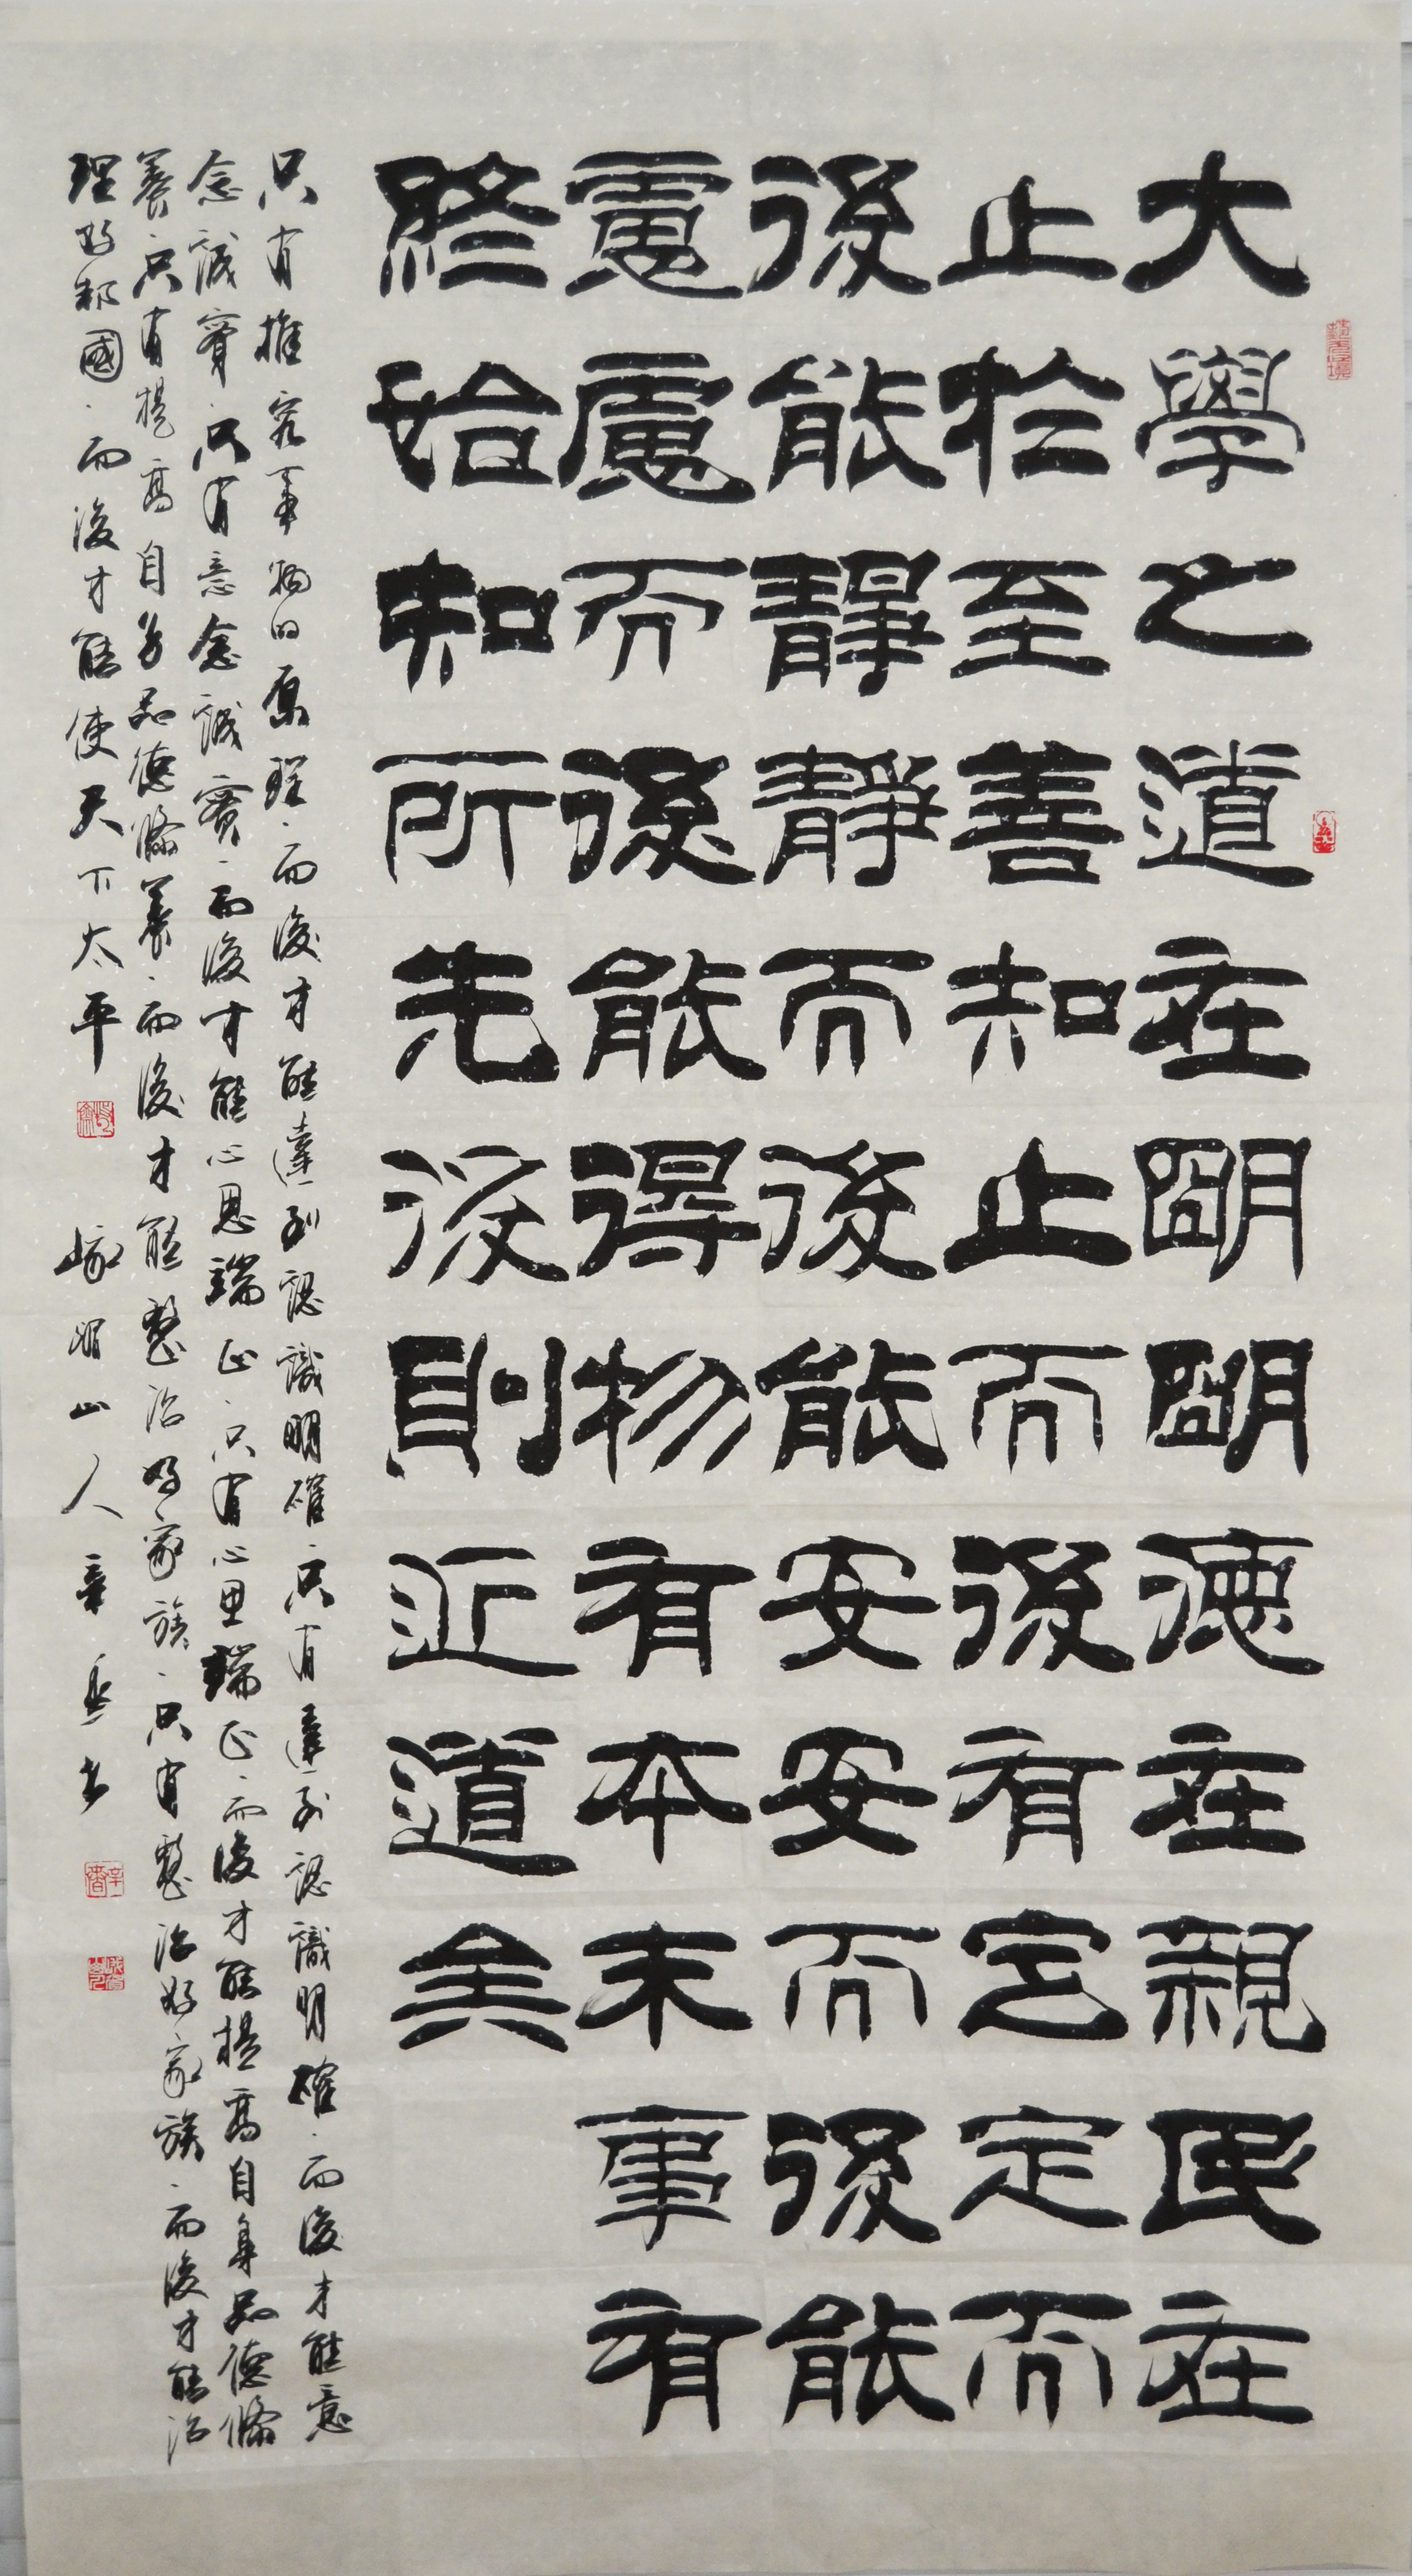 大學之道在明明德在親民在
止於至善知止而後有定定而
後能靜靜而後能安安而後能
慮慮而後能得物有本末事有
終始知所先後則近道矣
只有推究事物的原理·而後才能達到認識明確·只有達到認識明確·而後才能意
念誠實·只有意念誠實·而後才能心思端正·只有心思端正·而後才能提高自身品德修
養·只有提高自身品德修養·而後才能整治好家族·只有整治好家族·而後才能治
理好邦國·而後才能使天下太平
峨眉山人辛